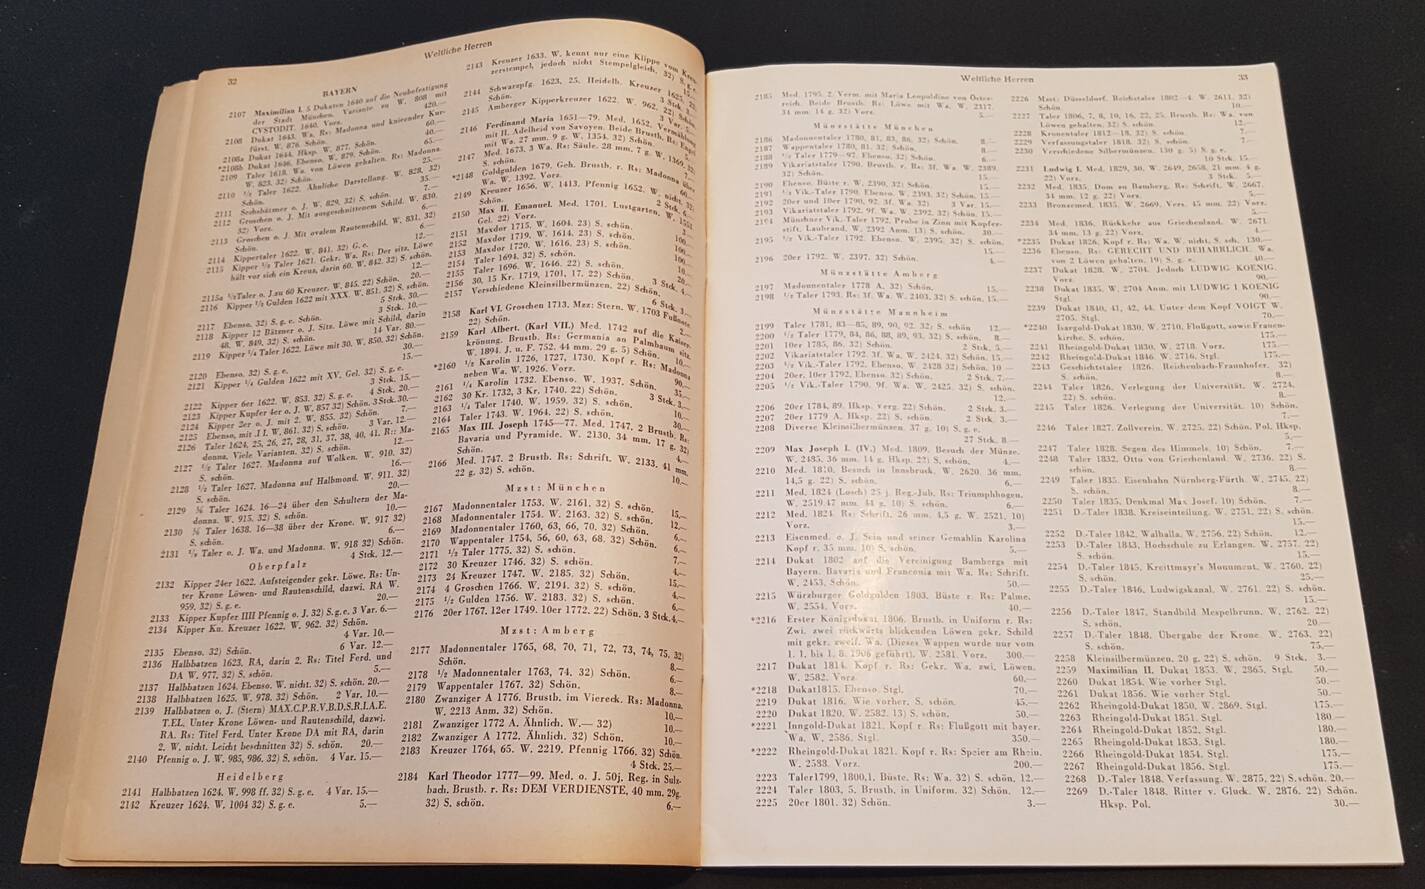 32
Weltliche Herren
BAYERN
2107 Maximilian I. 5 Dukaten 1640 auf die Neubefestigung
der Stadt München. Variante zu W. 808 mit
CVSTODIT. 1640. Vorz. 420.—
2108 Dukat 1643. Wa. Rs: Madonna und kniender Kur-
fürst. W. 876. Schön. 60.—
2108a Dukat 1644. Hksp. W. 877. Schön. 40.—
*2108b Dukat 1646. Ebenso. W. 879. Schön. 65.—
2109 Taler 1618. Wa. von Löwen gehalten. Rs: Madonna.
W. 823. 32) Schön. 25.—
2110 ½ Taler 1622. Ähnliche Darstellung. W. 828, 32)
Schön. 35.—
2111 Sechsbätzner o. J. W. 829. 32) S. schön. 7.—
2112 Groschen o. J. Mit ausgeschnittenem Schild. W. 830.
32) Vorz. 6.—
2113 Groschen o. J. Mit ovalem Rautenschild. W. 831. 32)
Schön. 6.—
2114 Kippertaler 1622. W. 841. 32) G. e. 12.—
2115 Kipper ½ Taler 1621. Gekr. Wa. Rs: Der sitz. Löwe
hält vor sich ein Kreuz, darin 60. W. 842. 32) S. schön.
12.—
2115a ½Taler o. J.zu 60 Kreuzer. W. 845. 22) Schön. 20.—
2116 Kipper ½ Gulden 1622 mit XXX. W. 851. 32) S. schön.
5 Stck. 30.—
2117 Ebenso. 32) S. g. e. Schön. 3 Stck. 10.—
2118 Kipper 12 Bätzner o. J. Sitz. Löwe mit Schild, darin
48. W. 849. 32) S. schön. 14 Var. 80.—
2119 Kipper ¼ Taler 1622. Löwe mit 30. W. 850. 32) Schön.
30.—
2120 Ebenso. 32) S. g. e. 15.—
2121 Kipper ¼ Gulden 1622 mit XV. Gel. 32) S. g. e.
3 Stck. 15.—
2122 Kipper 6er 1622. W. 853. 32) S. g. e. 4 Stck. 20.—
2123 Kipper Kupfer 4er o. J. W. 857 32) Schön. 3 Stck. 30.—
2124 Kipper 2er o. J. mit 2. W. 855. 32) Schön. 7.—
2125 Ebenso, mit J I. W. 861. 32) S. schön. 3 Var. 12.—
2126 Taler 1624, 25, 26, 27, 28, 31, 37, 38, 40, 41. R:: Ma-
donna. Viele Varianten. 32) S. schön. 12.—
2127 ½ Taler 1627. Madonna auf Wolken. W. 910. 32)
S. schön. 16.—
2128 ½ Taler 1627. Madonna auf Halbmond. W. 911. 32)
S. schön. 20.—
2129 ⅙ Taler 1624. 16—24 über den Schultern der Ma-
donna. W. 915. 32) S. schön. 10.—
2130 ⅙ Taler 1638. 16—38 über der Krone. W. 917 32)
S. schön. 6.—
2131 ⅑ Taler o. J. Wa. und Madonna. W. 918 32) Schön.
4 Stck. 12.—
Oberpfalz
2132 Kipper 24er 1622. Aufsteigender gekr. Löwe. Rs: Un-
ter Krone Löwen- und Rautenschild, dazwi. RA. W.
959. 32) S. g. e. 20.—
2133 Kipper Kupfer IIII Pfennig o. J. 32) S.g.e. 3 Var. 6.—
2134 Kipper Ku. Kreuzer 1622. W. 962. 32) Schön.
4 Var. 10.—
2135 Ebenso. 32) Schön. 6 Var. 12.—
2136 Halbbatzen 1623, RA, darin 2. Rs: Titel Ferd. und
DA W. 977. 32) S. schön. 5.—
2137 Halbbatzen 1624. Ebenso. W. nicht. 32) S. schön. 20.—
2138 Halbbatzen 1625. W. 978. 32) Schön. 2 Var. 10.—
2139 Halbbatzen o. J. (Stern) MAX.C.P.R.V.B.D.S.R.I.A.E.
T.EL. Unter Krone Löwen- und Rautenschild, dazwi.
RA. Rs: Titel Ferd. Unter Krone DA mit RA, darin
2. W. nicht. Leicht beschnitten 32) S. schön. 20.—
2140 Pfennig o. J. W. 985, 986. 32) S. schön. 4 Var. 15.—
Heidelberg
2141 Halbbatzen 1624. W. 998 ff. 32) S. g. e. 4 Var. 15.—
2142 Kreuzer 1624. W. 1004 32) S. g. e. 5.—
2143 Kreuzer 1633. W. kennt nur eine Klippe vom
zerstempel, jedoch nicht Stempelgleich. 32) S. g. e.
2144 Schwarzpfg. 1623, 25. Heidelb. Kreuzer 1625.
Schön.
2145 Amberger Kipperkreuzer 1622. W. 962. 22)
2146 Ferdinand Maria 1651—79. Med. 1652. Vermählung
mit H. Adelheid von Savoyen. Beide Brustb. Rs:
mit Wa. 27 mm. 9 g. W. 1354. 32) Schön.
2147 Med. 1673, 3 Wa. Rs: Säule. 28 mm. 7 g. W. 1369.
S. schön.
*2148 Goldgulden 1679. Geh. Brustb. r. Rs: Madonna über
Wa. W. 1392. Vorz. 60.—
2149 Kreuzer 1656. W. 1413. Pfennig 1652. W. nicht.
Schön.
2150 Max II. Emanuel. Med. 1701. Lustgarten. W. 1551.
Gel. 22) Vorz. 3.—
2151 Maxdor 1715. W. 1604. 23) S. schön. 100.—
2152 Maxdor 1719. W. 1614. 23) S. schön. 100.—
2153 Maxdor 1720. W. 1616. 23) S. schön. 100.—
2154 Taler 1694. 32) S. schön. 10.—
2155 Taler 1696. W. 1646. 22) S. schön. 20.—
2156 30, 15 Kr. 1719, 1701, 17. 22) Schön. 3 Stck. 4.—
2157 Verschiedene Kleinsilbermünzen. 22) Schön.
6 Stck. 3.—
2158 Karl VI. Groschen 1713. Mzz: Stern. W. 1703 Fußnote.
22) Schön. 2.—
2159 Karl Albert. (Karl VII.) Med. 1742 auf die Kaiser-
krönung. Brustb. Rs: Germania an Palmbaum sitz.
W. 1894. J. u. F. 752. 44 mm. 29 g. 5) Schön. 10.—
*2160 ½ Karolin 1726, 1727, 1730. Kopf r. Rs: Madonna
neben Wa. W. 1926. Vorz. 90.—
2161 ¼ Karolin 1732. Ebenso. W. 1937. Schön. 35.—
2162 30 Kr. 1732, 3 Kr. 1740. 22) Schön. 3 Stck. 3.—
2163 ¼ Taler 1740. W. 1959. 32) S. schön. 10.—
2164 Taler 1743. W. 1964. 22) S. schön. 30.—
2165 Max III. Joseph 1745—77. Med. 1747. 2 Brustb. Rs:
Bavaria und Pyramide. W. 2130. 34 mm. 17 g. 32)
Schön. 4.—
2166 Med. 1747. 2 Brustb. Rs: Schrift. W. 2133. 41 mm.
22 g. 32) S. schön. 10.—
Mzst: München
2167 Madonnentaler 1753. W. 2161. 32) S. schön. 15.—
2168 Madonnentaler 1754. W. 2163. 32) S. schön. 12.—
2169 Madonnentaler 1760, 63, 66, 70. 32) Schön. 6.—
2170 Wappentaler 1754, 56, 60, 63, 68. 32) Schön. 6.—
2171 ½ Taler 1775. 32) S. schön. 7.—
2172 30 Kreuzer 1746. 32) S. schön. 4.—
2173 24 Kreuzer 1747. W. 2185. 32) Schön. 15.—
2174 4 Groschen 1766. W. 2194. 32) S. schön. 4.—
2175 ½ Gulden 1756. W. 2183. 32) S. schön. 6.—
2176 20er 1767. 12er 1749. 10er 1772. 22) Schön. 3 Stck.4.—
Mzst: Amberg
2177 Madonnentaler 1765, 68, 70, 71, 72, 73, 74, 75. 32)
Schön. 6.—
2178 ½ Madonnentaler 1763, 74. 32) S. schön. 8.—
2179 Wappentaler 1767. 32) Schön. 8.—
2180 Zwanziger A 1776. Brustb. im Viereck. Rs: Madonna.
W. 2213 Anm. 32) Schön. 10.—
2181 Zwanziger 1772 A. Ähnlich. W.— 32) 10.—
2182 Zwanziger A 1772. Ähnlich. 32) Schön. 10.—
2183 Kreuzer 1764, 65. W. 2219. Pfennig 1766. 32) Schön.
4 Stck. 25.—
2184 Karl Theodor 1777—99. Med. o. J. 50j. Reg. in Sulz-
bach. Brustb. r. Rs: DEM VERDIENSTE. 40 mm. 29g.
32) S. schön. 6.—
Weltliche Herren
33
2185 Med. 1795. 2. Verm. mit Maria Leopoldine von Öster-
reich. Beide Brustb. Rs: Löwe mit Wa. W. 2317.
34 mm. 14 g. 32) Vorz. 5.—
Münzstätte München
2186 Madonnentaler 1780, 81, 83, 86. 32) Schön. 8.—
2187 Wappentaler 1780, 81. 32) Schön. 8.—
2188 ½ Taler 1779—97. Ebenso. 32) Schön. 6.—
2189 Vikariatstaler 1790. Brustb. r. Rs: 3f. Wa. W. 2389.
32) Schön. 15.—
2190 Ebenso. Büste r. W. 2390. 32) Schön. 15.—
2191 ½ Vik.-Taler 1790. Ebenso. W. 2393. 32) Schön. 15.—
2192 20er und 10er 1790, 92. 3f. Wa. 32) 3 Var. 15.—
2193 Vikariatstaler 1792. 9f. Wa. W. 2392. 32) Schön. 15.—
2194 Münchner Vik.-Taler 1792. Probe in Zinn mit Kupfer-
stift. Laubrand. W. 2392 Anm. 13) S. schön. 30.—
2195 ½ Vik.-Taler 1792. Ebenso. W. 2395. 32) S. schön.
15.—
2196 20er 1792. W. 2397. 32) Schön. 4.—
Münzstätte Amberg
2197 Madonnentaler 1778 A. 32) Schön. 15.—
2198 ½ Taler 1793. Rs: 3f. Wa. W. 2403. 32) S. schön. 15.—
Münzstätte Mannheim
2199 Taler 1781, 83—85, 89, 90, 92. 32) S. schön 12.—
2200 ½ Taler 1779, 84, 86, 88, 89, 93. 32) S. schön. 8.—
2201 10er 1785, 86. 32) Schön. 2 Stck. 5.—
2202 Vikariatstaler 1792. 3f. Wa. W. 2424. 32) Schön. 15.—
2203 ½ Vik.-Taler 1792. Ebenso. W. 2428 32) Schön. 10 —
2204 20er, 10er 1792. Ebenso. 32) Schön. 2 Stck. 7.—
2205 ½ Vik.-Taler 1790. 9f. Wa. W. 2425. 32) S. schön.
12.—
2206 20er 1784, 89. Hksp. verg. 22) Schön. 2 Stck. 3.—
2207 20er 1779 A. Hksp. 22) S. schön. 2 Stck. 8.—
2208 Diverse Kleinsilbermünzen. 37 g. 10) S. g. e.
27 Stck. 8.—
2209 Max Joseph I. (IV.) Med. 1809. Besuch der Münze.
W. 2485. 36 mm. 14 g. Hksp. 22) S. schön. 4.—
2210 Med. 1810. Besuch in Innsbruck. W. 2620. 36 mm.
14,5 g. 22) S. schön. 6.—
2211 Med. 1824 (Losch) 25 j. Reg.-Jub. Rs: Triumphbogen.
W. 2519.47 mm. 44 g. 10) S. schön. 6.—
2212 Med. 1824. Rs: Schrift. 26 mm. 4,5 g. W. 2521. 10)
Vorz. 3.—
2213 Eisenmed. o. J. Sein und seiner Gemahlin Karolina
Kopf r. 35 mm. 10) S. schön. 5.—
2214 Dukat 1802 auf die Vereinigung Bambergs mit
Bayern. Bavaria und Franconia mit Wa. Rs: Schrift.
W. 2453. Schön. 50.—
2215 Würzburger Goldgulden 1803. Büste r. Rs: Palme.
W. 2554. Vorz. 40.—
*2216 Erster Königsdukat 1806. Brustb. in Uniform r. Rs:
Zwi. zwei rückwärts blickenden Löwen gekr. Schild
mit gekr. zweif. Wa. (Dieses Wappen wurde nur vom
1. 1. bis 1. 8. 1906 geführt). W. 2581. Vorz. 300.—
2217 Dukat 1814. Kopf r. Rs: Gekr. Wa. zwi. Löwen.
W. 2582. Vorz. 60.—
*2218 Dukat1815. Ebenso. Stgl. 70.—
2219 Dukat 1816. Wie vorher. S. schön. 45.—
2220 Dukat 1820. W. 2582. 13) S. schön. 50.—
*2221 Inngold-Dukat 1821. Kopf r. Rs: Flußgott mit bayer.
Wa. W. 2586. Stgl. 350.—
*2222 Rheingold-Dukat 1821. Kopf r. Rs: Speier am Rhein.
W. 2588. Vorz. 200.—
2223 Taler1799, 1800,1. Büste. Rs: Wa. 32) S. schön. 12.—
2224 Taler 1803, 5. Brustb. in Uniform. 32) Schön. 12.—
2225 20er 1801. 32) Schön. 3.—
2226 Mzst: Düsseldorf. Reichstaler 1802—4. W. 2611. 32)
Schön. 10.—
2227 Taler 1806, 7, 8, 10, 16, 22, 25. Brustb. Rs: Wa. von
Löwen gehalten. 32) S. schön. 12.—
2228 Kronentaler 1812—18. 32) S. schön. 7.—
2229 Verfassungstaler 1818. 32) S. schön. 7.—
2230 Verschiedene Silbermünzen. 150 g. 5) S. g. e.
10 Stck. 15.—
2231 Ludwig I. Med. 1829, 30. W. 2649, 2658. 21 mm. 4 g.
22) Vorz. 3 Stck. 5.—
2232 Med. 1835. Dom zu Bamberg. Rs: Schrift. W. 2667.
34 mm. 12 g. 22) Vorz. 5.—
2233 Bronzemed. 1835. W. 2669. Vers. 45 mm. 22) Vorz.
5.—
2234 Med. 1836. Rückkehr aus Griechenland. W. 2671.
34 mm. 13 g. 22) Vorz. 4.—
*2235 Dukat 1826. Kopf r. Rs: Wa. W. nicht. S. sch. 130.—
2236 Ebenso. Rs: GERECHT UND BEHARRLICH. Wa.
von 2 Löwen gehalten. 19) S. g. e. 40.—
2237 Dukat 1828. W. 2704. Jedoch LUDWIG KOENIG.
Vorz. 90.—
2238 Dukat 1835. W. 2704 Anm. mit LUDWIG I KOENIG
Stgl. 90.—
2239 Dukat 1840, 41, 42, 44. Unter dem Kopf VOIGT W.
2705. Stgl. 70.—
*2240 Isargold-Dukat 1830. W. 2710. Flußgott, sowie Frauen-
kirche. S. schön. 175.—
2241 Rheingold-Dukat 1830. W. 2718. Vorz. 175.—
2242 Rheingold-Dukat 1846. W. 2716. Stgl. 175.—
2243 Geschichtstaler 1826. Reichenbach-Fraunhofer. 32)
S. schön. 8.—
2244 Taler 1826. Verlegung der Universität. W. 2724.
22) S. schön. 8.—
2245 Taler 1826. Verlegung der Universität. 10) Schön.
7.—
2246 Taler 1827. Zollverein. W. 2725. 22) Schön. Pol. Hksp.
5.—
2247 Taler 1828. Segen des Himmels. 10) Schön. 7.—
2248 Taler 1832. Otto von Griechenland. W. 2736. 22) S.
schön. 8.—
2249 Taler 1835. Eisenbahn Nürnberg-Fürth. W. 2745. 22)
S. schön. 8.—
2250 Taler 1835. Denkmal Max Josef. 10) Schön. 7.—
2251 D.-Taler 1838. Kreiseinteilung. W. 2751. 22) S. schön.
15.—
2252 D.-Taler 1842. Walhalla. W. 2756. 22) Schön. 12.—
2253 D.-Taler 1843. Hochschule zu Erlangen. W. 2757. 22)
S. schön. 15.—
2254 D.-Taler 1845. Kreittmayr's Monument. W. 2760. 22)
S. schön. 25.—
2255 D.-Taler 1846. Ludwigskanal. W. 2761. 22) S. schön.
15.—
2256 D.-Taler 1847. Standbild Mespelbrunn. W. 2762. 22)
S. schön. 20.—
2257 D.-Taler 1848. Übergabe der Krone. W. 2763. 22)
S. schön. 75.—
2258 Kleinsilbermünzen. 20 g. 22) S. schön. 9 Stck. 3.—
2259 Maximilian II. Dukat 1853. W. 2865. Stgl. 50.—
2260 Dukat 1854. Wie vorher Stgl. 50.—
2261 Dukat 1856. Wie vorher Stgl. 50.—
2262 Rheingold-Dukat 1850. W. 2869. Stgl. 175.—
2263 Rheingold-Dukat 1851. Stgl. 180.—
2264 Rheingold-Dukat 1852. Stgl. 180.—
2265 Rheingold-Dukat 1853. Stgl. 180.—
2266 Rheingold-Dukat 1854. Stgl. 175.—
2267 Rheingold-Dukat 1856. Stgl. 175.—
2268 D.-Taler 1848. Verfassung. W. 2875. 22) S. schön. 20.—
2269 D.-Taler 1848. Ritter v. Gluck. W. 2876. 22) Schön.
Hksp. Pol. 30.—